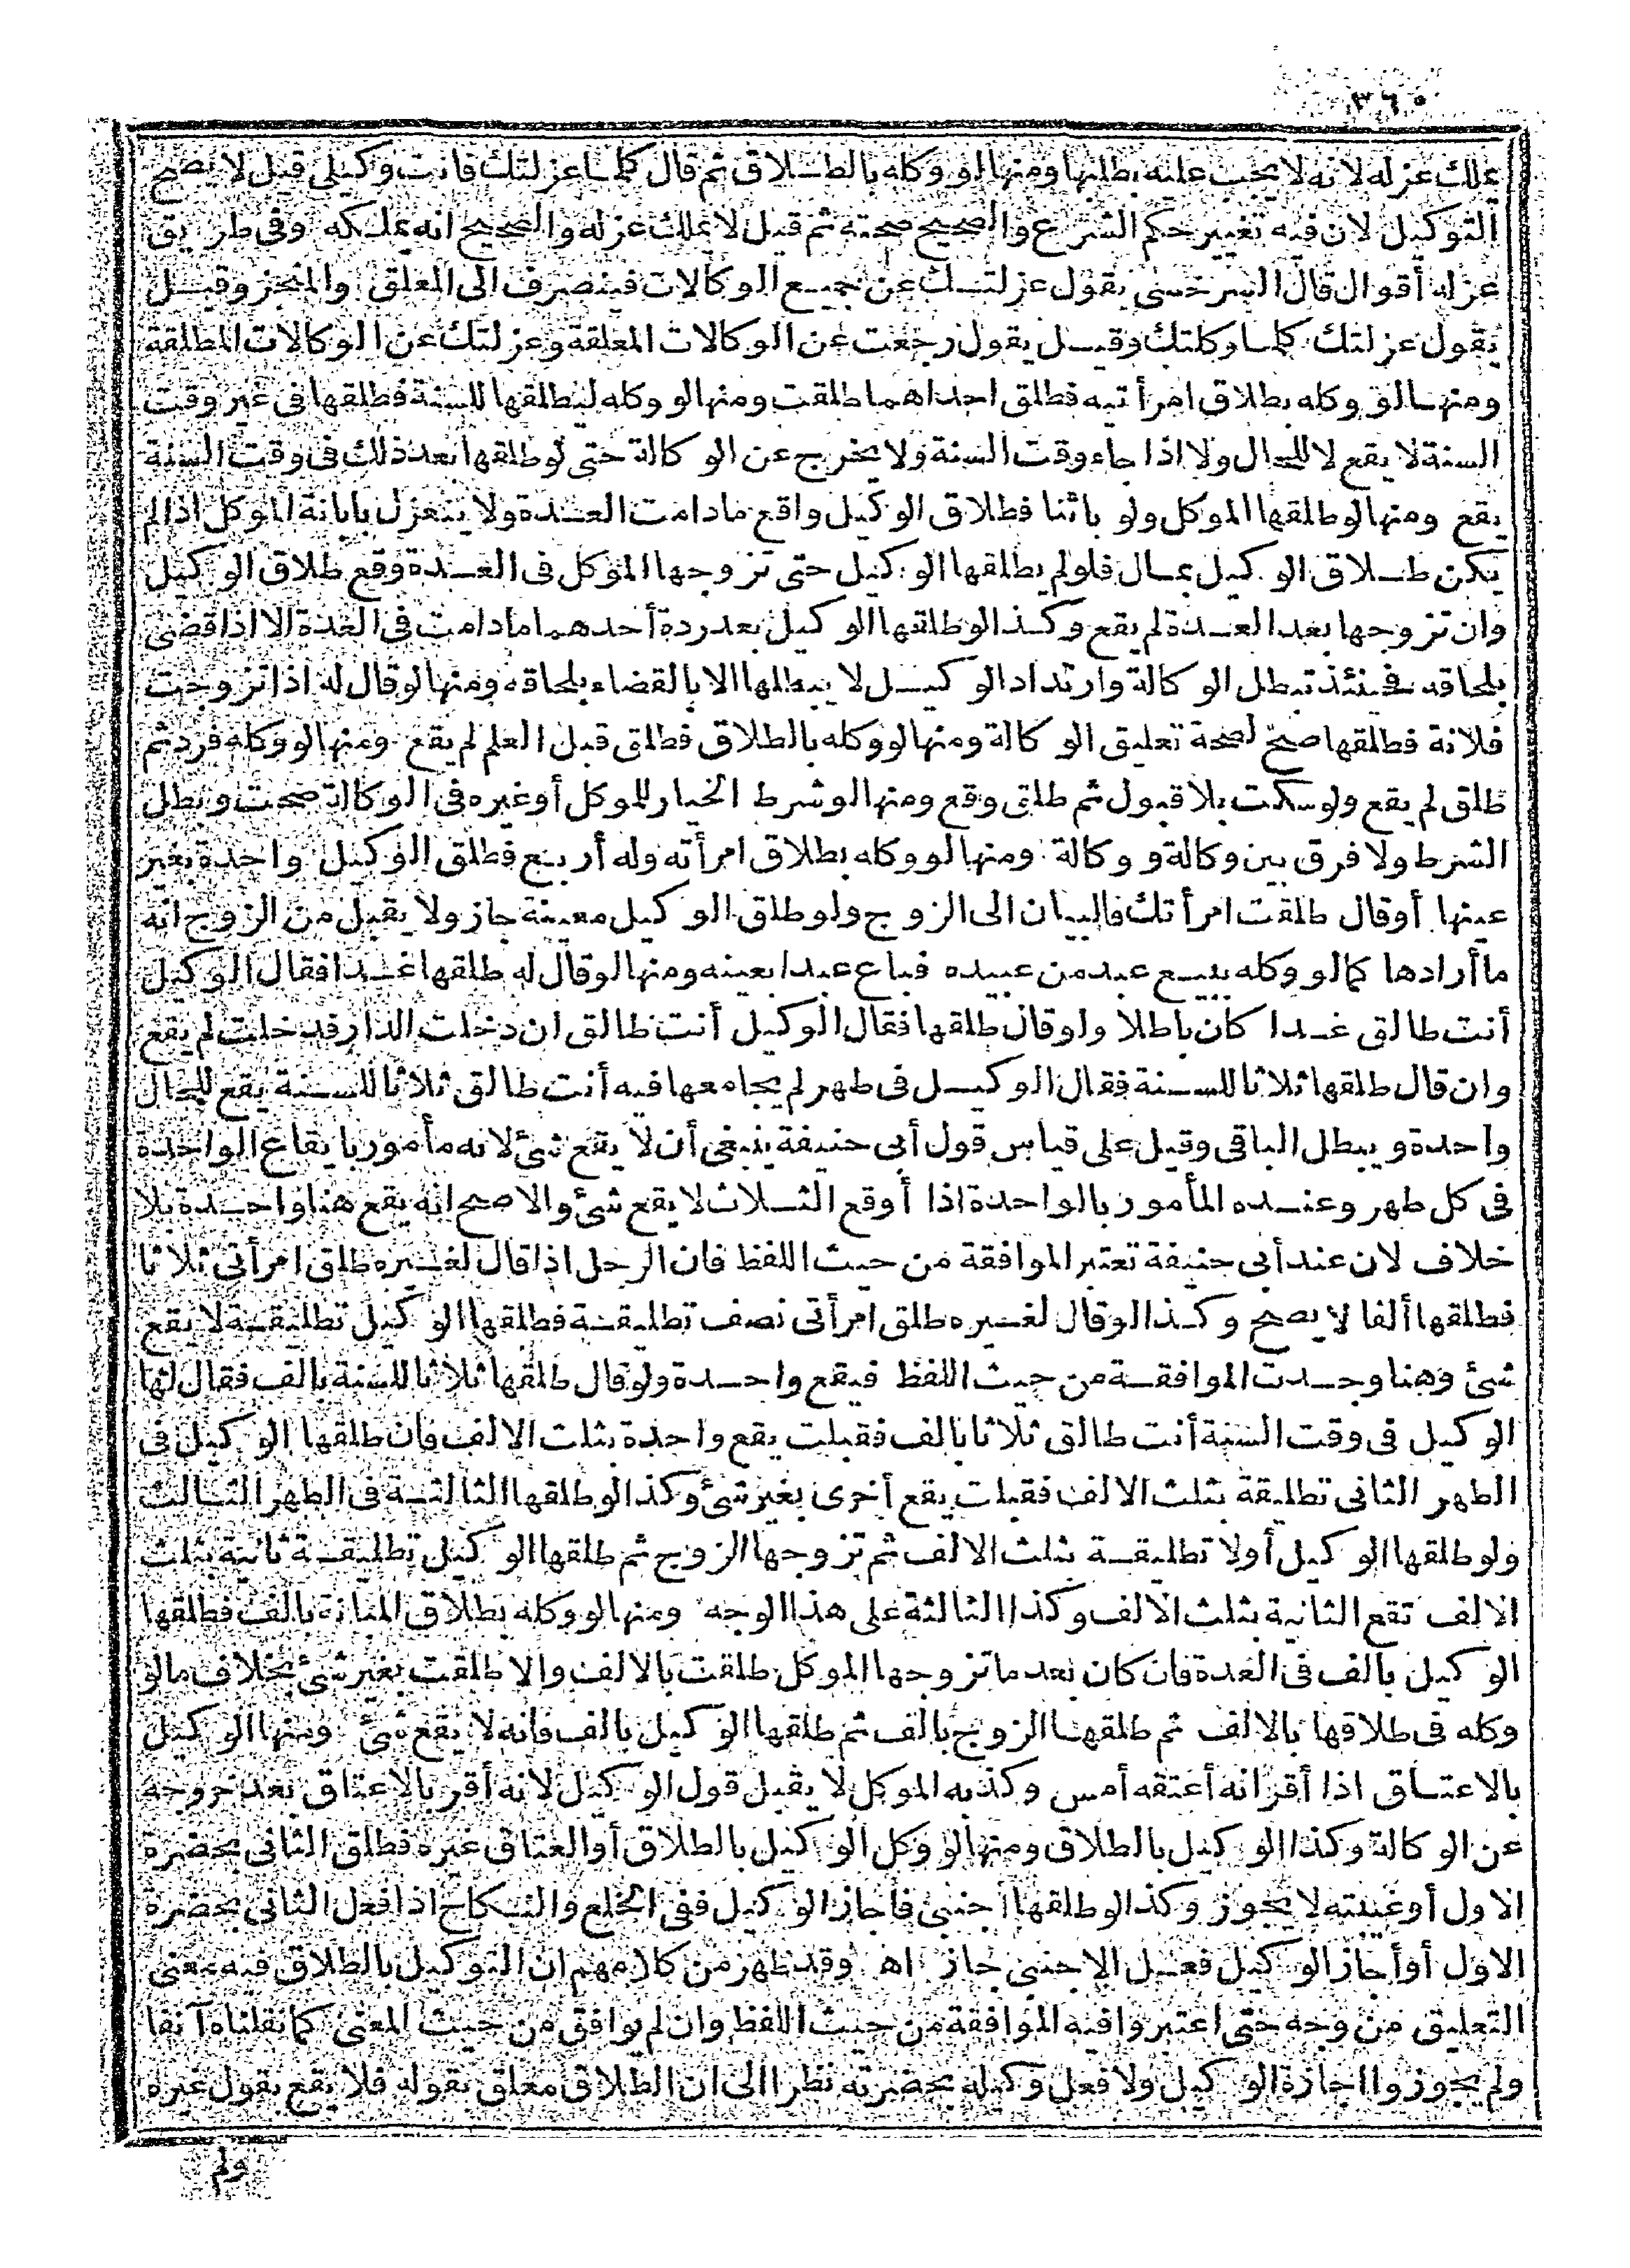 ٣٦٠
يملك عزله لانه لا يجب عليه بطلبها ومنها لو وكله بالطلاق ثم قال كلما عزلتك فانت وكيلي قيل لا يصح
التوكيل لان فيه تغيير حكم الشرع والصحيح صحته ثم قيل لا يملك عزله والصحيح انه يملكه وفى طريق
عزله أقوال قال السرخسى يقول عزلتك عن جميع الوكالات فينصرف الى المعلق والمنجز وقيل
يقول عزلتك كلما وكلتك وقيل يقول رجعت عن الوكالات المعلقة وعزلتك عن الوكالات المطلقة
ومنها لو وكله بطلاق امرأتيه فطلق احداهما طلقت ومنها لو وكله ليطلقها للسنة فطلقها فى غير وقت
السنة لا يقع لا للحال ولا اذا جاء وقت السنة ولا يخرج عن الوكالة حتى لو طلقها بعد ذلك فى وقت السنة
يقع ومنها لو طلقها الموكل ولو بائنا فطلاق الوكيل واقع مادامت العدة ولا ينعزل بابانة الموكل اذا لم
يكن طلاق الوكيل بمال فلو لم يطلقها الوكيل حتى تزوجها الموكل فى العدة وقع طلاق الوكيل
وان تزوجها بعد العدة لم يقع وكذا لو طلقها الوكيل بعد ردة أحدهما مادامت فى العدة الا اذا قضى
بلحاقه فينئذ تبطل الوكالة وارتداد الوكيل لا يبطلها الا بالقضاء بلحاقه ومنها لو قال له اذا تزوجت
فلانة فطلقها صح لصحة تعليق الوكالة ومنها لو وكله بالطلاق فطلق قبل العلم لم يقع ومنها لو وكله فرد ثم
طلق لم يقع ولو سكت بلا قبول ثم طلق وقع ومنها لو شرط الخيار للموكل أو غيره فى الوكالة صحت وبطل
الشرط ولا فرق بين وكالة ووكالة ومنها لو وكله بطلاق امرأته وله أربع فطلق الوكيل واحدة بغير
عينها أو قال طلقت امرأتك فالبيان الى الزوج ولو طلق الوكيل معينة جاز ولا يقبل من الزوج انه
ما أرادها كما لو وكله ببيع عبد من عبيده فباع عبدا بعينه ومنها لو قال له طلقها غدا فقال الوكيل
أنت طالق غدا كان باطلا ولو قال طلقها فقال الوكيل أنت طالق ان دخلت الدار فدخلت لم يقع
وان قال طلقها ثلاثا للسنة فقال الوكيل فى طهر لم يجامعها فيه أنت طالق ثلاثا للسنة يقع للحال
واحدة ويبطل الباقى وقيل على قياس قول أبى حنيفة ينبغى أن لا يقع شئ لانه مأمور بايقاع الواحدة
فى كل طهر وعنده المأمور بالواحدة اذا أوقع الثلاث لا يقع شئ والاصح انه يقع هنا واحدة بلا
خلاف لان عند أبى حنيفة تعتبر الموافقة من حيث اللفظ فان الرجل اذا قال لغيره طلق امرأتى ثلاثا
فطلقها ألفا لا يصح وكذا لو قال لغيره طلق امرأتى نصف تطليقة فطلقها الوكيل تطليقة لا يقع
شئ وهنا وجدت الموافقة من حيث اللفظ فيقع واحدة ولو قال طلقها ثلاثا للسنة بالف فقال لها
الوكيل فى وقت السنة أنت طالق ثلاثا بالف فقبلت يقع واحدة بثلث الالف فان طلقها الوكيل فى
الطهر الثانى تطليقة بثلث الالف فقبلت يقع أخرى بغير شئ وكذا لو طلقها الثالثة فى الطهر الثالث
ولو طلقها الوكيل أولا تطليقة بثلث الالف ثم تزوجها الزوج ثم طلقها الوكيل تطليقة ثانية بثلث
الالف تقع الثانية بثلث الالف وكذا الثالثة على هذا الوجه ومنها لو وكله بطلاق المبانة بالف فطلقها
الوكيل بالف فى العدة فان كان بعد ما تزوجها الموكل طلقت بالالف والا طلقت بغير شئ بخلاف ما لو
وكله فى طلاقها بالالف ثم طلقها الزوج بالف ثم طلقها الوكيل بالف فانه لا يقع شئ ومنها الوكيل
بالاعتاق اذا أقر انه أعتقه أمس وكذبه الموكل لا يقبل قول الوكيل لانه أقر بالاعتاق بعد خروجه
عن الوكالة وكذا الوكيل بالطلاق ومنها لو وكل الوكيل بالطلاق أو العتاق غيره فطلق الثانى بحضرة
الاول أو غيبته لا يجوز وكذا لو طلقها أجنبى فاجاز الوكيل ففى الخلع والنكاح اذا فعل الثانى بحضرة
الاول أو أجاز الوكيل فعل الاجنبى جاز اه وقد ظهر من كلامهم ان التوكيل بالطلاق فيه معنى
التعليق من وجه حتى اعتبروا فيه الموافقة من حيث اللفظ وان لم يوافق من حيث المعنى كما نقلناه آنفا
ولم يجوزوا اجازة الوكيل ولا فعل وكيله بحضرته نظرا الى ان الطلاق معلق بقوله فلا يقع بقول غيره
ولم